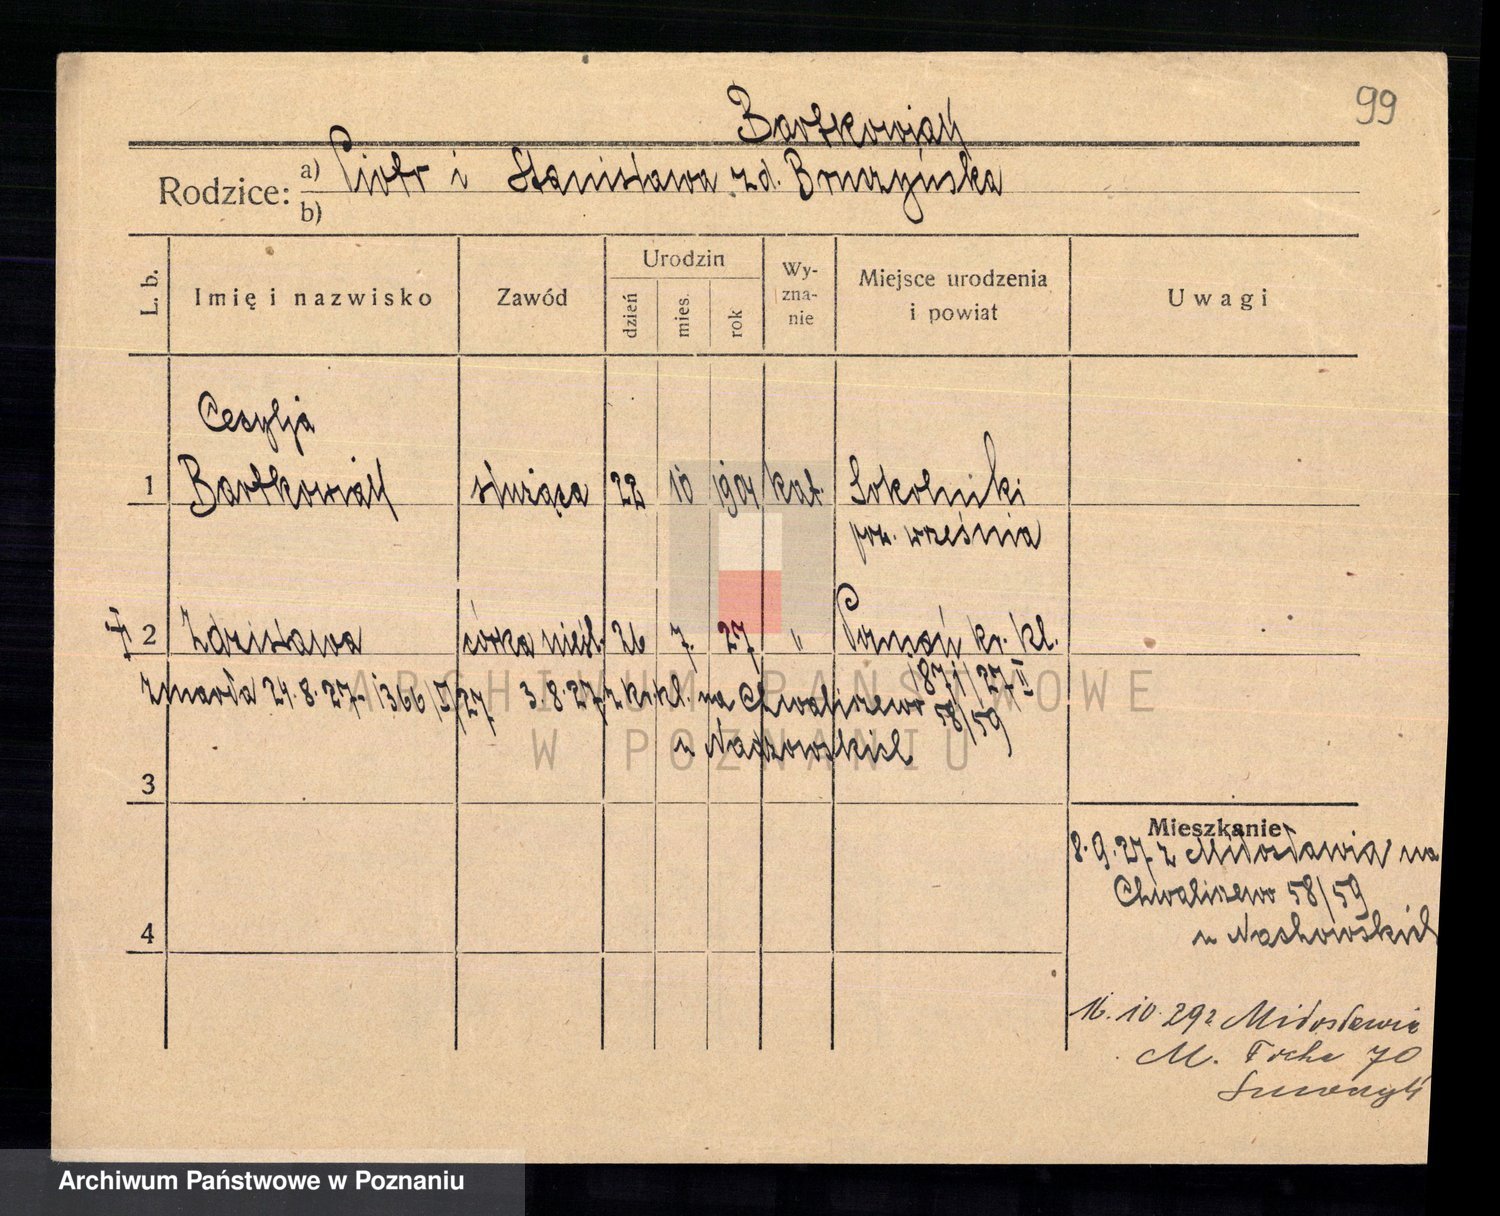 99
Bartkowiak
Rodzice: a) Piotr i Stanisława zd. Bruczyńska
b)
L. b.
Imię i nazwisko
Zawód
Urodzin
dzień
mies.
rok
Wy-
zna-
nie
Miejsce urodzenia
i powiat
Uwagi
Cesylja
1 Bartkowiak służąca 22 10 1904 kat. Sokolniki
pow. września
2 Zdzisława córka nieśl. 26 7. 27 " Poznań kr. kl.
871/27 II
zmarła 24.8.27 1366/I/27 3.8.27 z kr. kl. na Chwaliszewo 58/59
u
3
4
Mieszkanie
8.9.27 z Miłosławia na
Chwaliszewo 58/59
u
16.10.29 z Miłosławia
M. Focha 70
ARCHIWUM PAŃSTWOWE
W POZNANIU
Archiwum Państwowe w Poznaniu